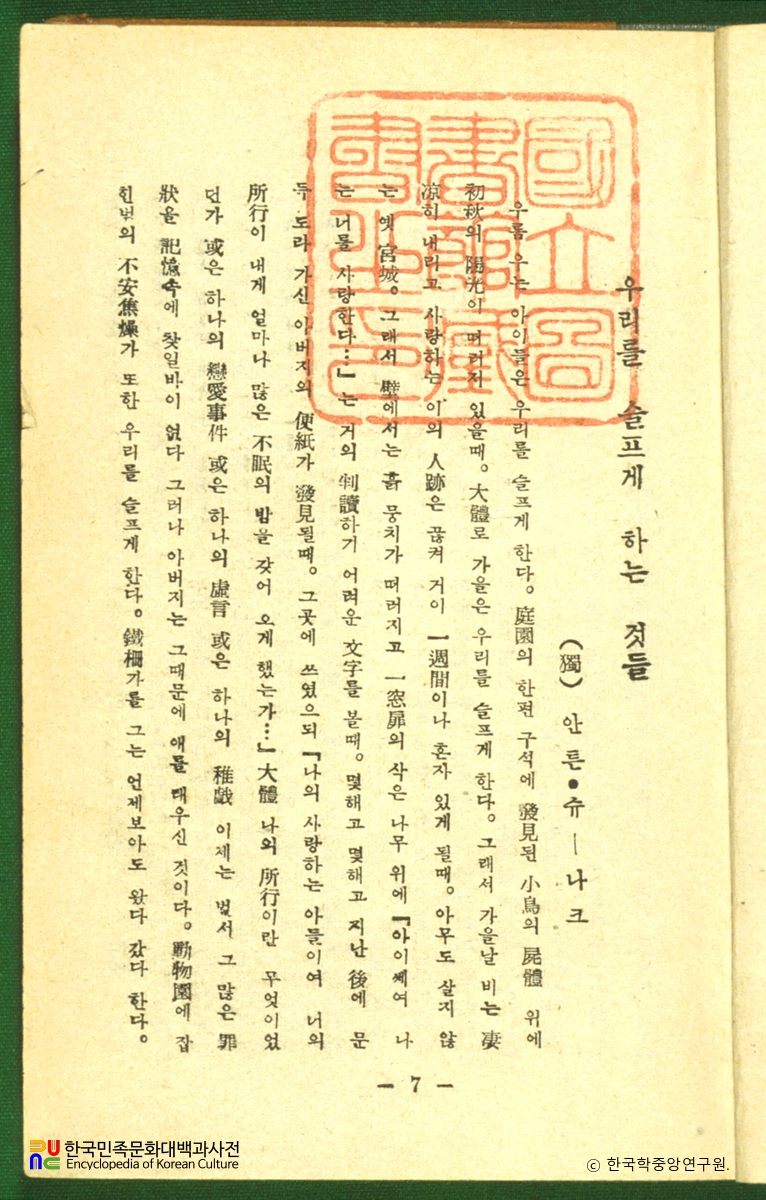 우리를 슬프게 하는 것들
(獨) 안톤●슈ㅣ나크
우름 우는 아이들은 우리를 슬프게 한다。庭園의 한편 구석에 發見된 小鳥의 屍體 위에
初秋의 陽光이 떠러저 있을때。大體로 가을은 우리를 슬프게 한다。그래서 가을날 비는 凄
凉히 내리고 사랑하는 이의 人跡은 끊켜 거이 一週間이나 혼자 있게 될때。아무도 살지 않
는 옛 宮城。그래서 壁에서는 흙 뭉치가 떠러지고 一窓扉의 삭은 나무 위에 『아이쎄여 나
는 너를 사랑한다…』는 거의 判讀하기 어려운 文字를 볼때。몇해고 몇해고 지난 後에 문
득 도라 가신 아버지의 便紙가 發見될때。그곳에 쓰였으되 『나의 사랑하는 아들이여 너의
所行이 내게 얼마나 많은 不眠의 밤을 갖어 오게 했는가…』大體 나의 所行이란 무엇이었
던가 或은 하나의 戀愛事件 或은 하나의 虛言 或은 하나의 稚戱 이제는 벌서 그 많은 罪
狀을 記憶속에 찾일바이 없다 그러나 아버지는 그때문에 애를 태우신 것이다。動物園에 잡
힌범의 不安焦燥가 또한 우리를 슬프게 한다。鐵柵가를 그는 언제보아도 왔다 갔다 한다。
— 7 —
國立圖
書館藏
書之印
한국민족문화대백과사전
Encyclopedia of Korean Culture
ⓒ 한국학중앙연구원.